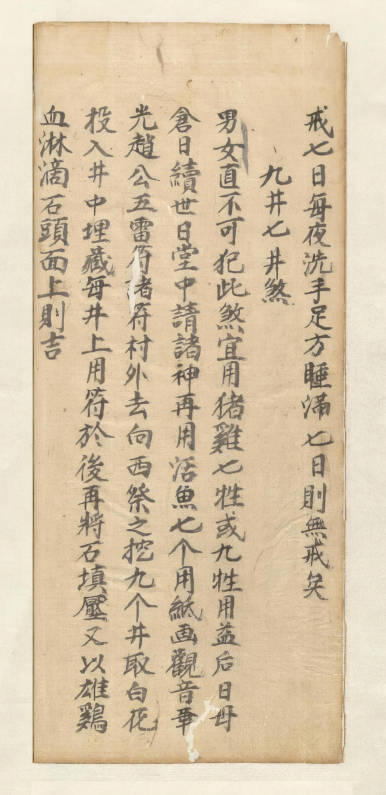 戒七日每夜洗手足方睡滿七日則無戒矣
九井七井煞
男女直不可犯此煞宜用猪雞七牲或九牲用益后日毋
倉日續世日堂中請諸神再用活魚七个用紙画觀音華
光趙公五雷符諸符村外去向西祭之挖九个井取白花
投入井中埋藏每井上用符於後再將石填壓又以雄鷄
血淋滴石頭面上則吉